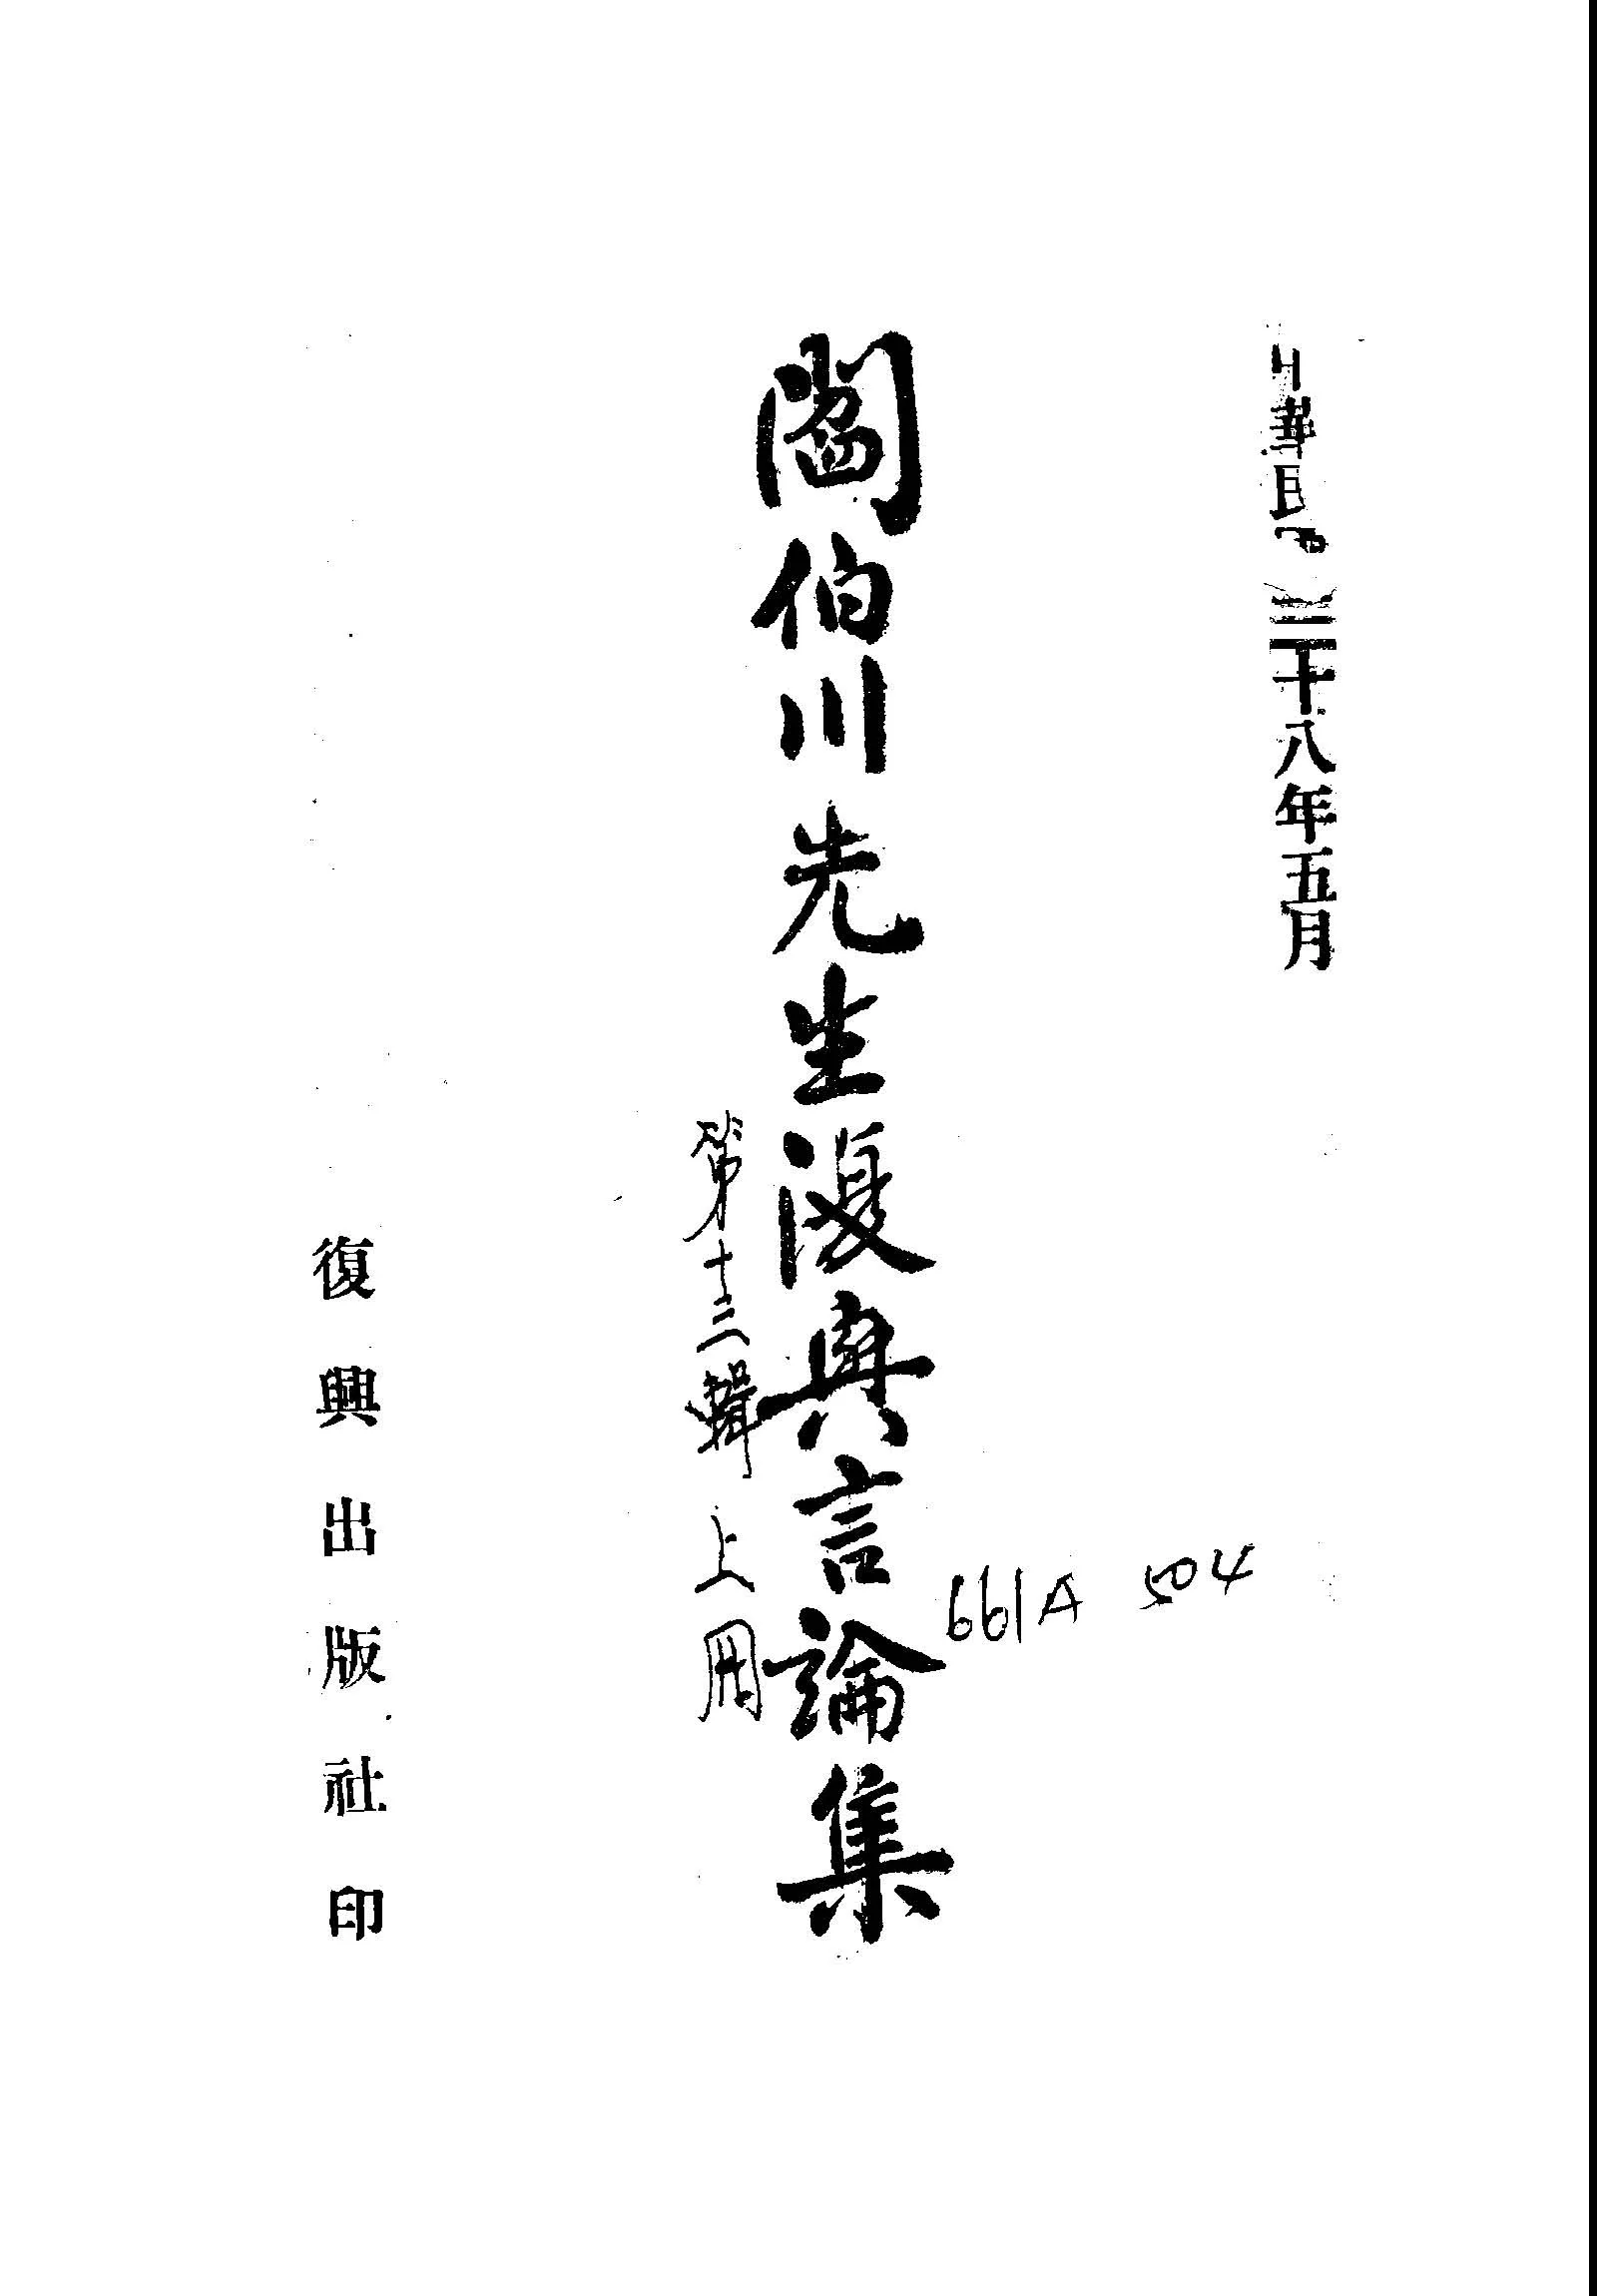 中華民國三十八年五月
閻伯川先生復興言論集
第十三輯 上冊
661A 504
復興出版社印